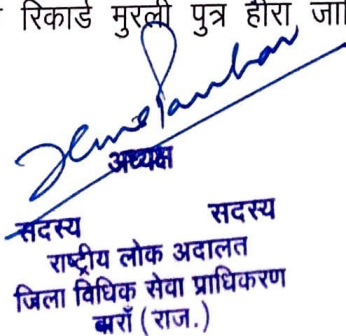 रिकार्ड मुरली पुत्र हीरा
अध्यक्ष
सदस्य सदस्य
राष्ट्रीय लोक अदालत
जिला विधिक सेवा प्राधिकरण
बाराँ (राज.)